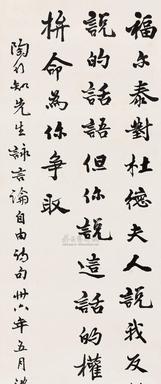 福尔泰對杜德夫人說我反
說的話語但你說這話的權
拚命為你爭取
陶行知先生詠言論自由的句卅六年五月